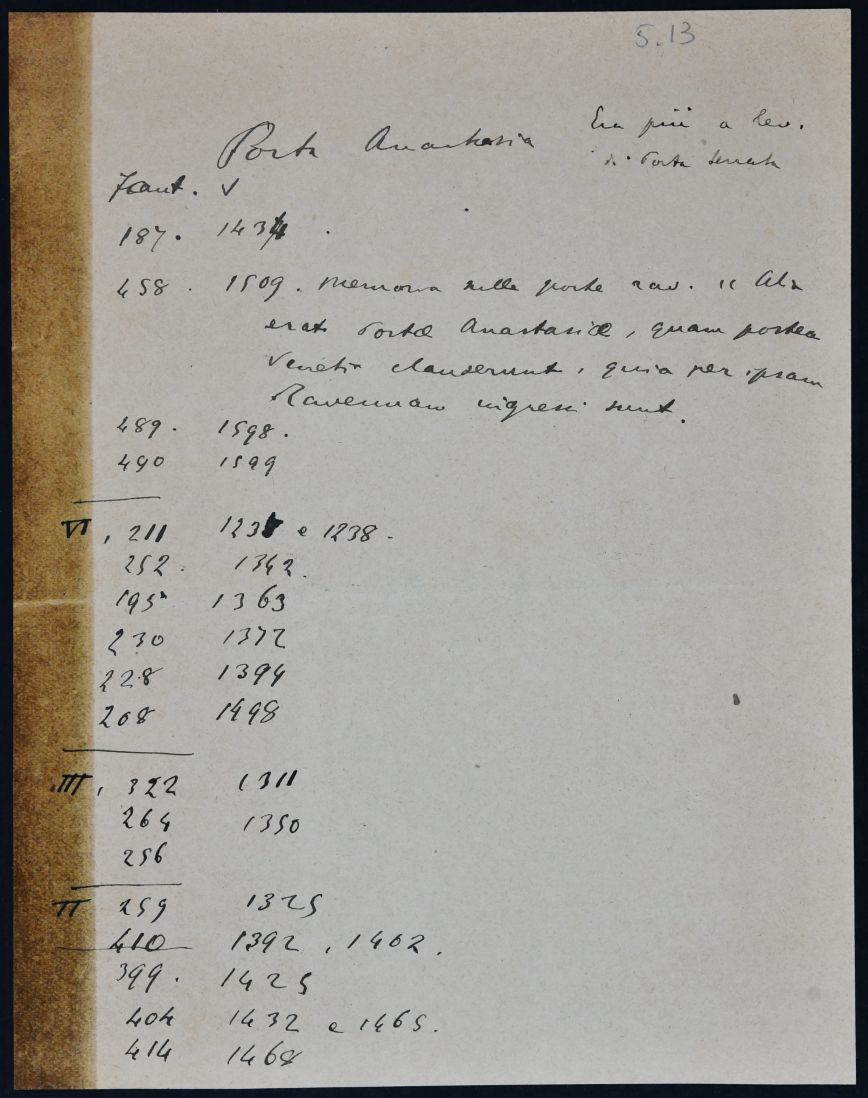 5.13
Porta Anastasia
Era più a lev.
di Porta Serrata
Fant. V
187. 1434.
458. 1509. Memoria sulle porte rav. "Alia
erat Portæ Anastasiæ, quam postea
Veneti clauserunt, quia per ipsam
Ravennam ingressi sunt.
489. 1598.
490 1599
VI, 211 e 1238.
252. 1342.
195 1363
230 1372
228 1394
208 1498
III, 322 1311
264 1350
256
II 259 1325
410 1392, 1402.
399. 1425
404 1432 e 1465.
414 1468